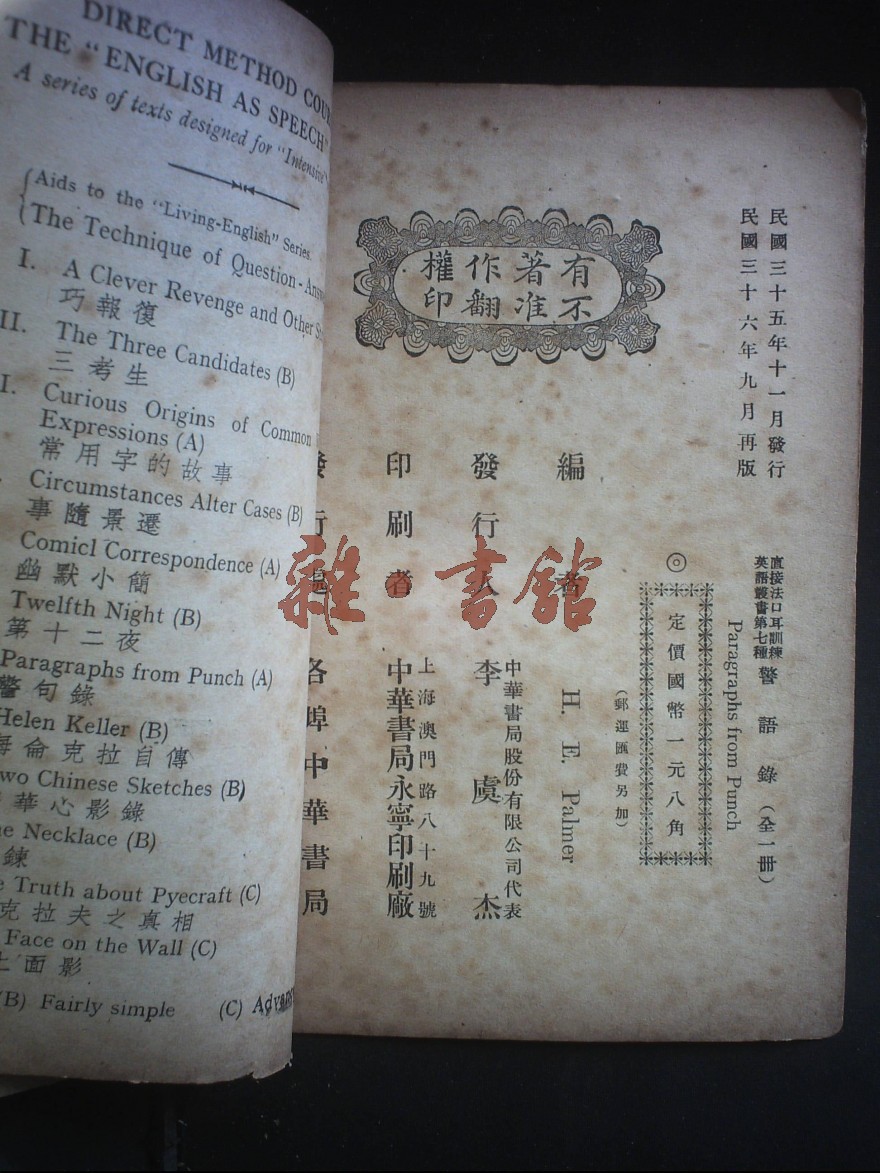 DIRECT METHOD
THE "ENGLISH AS SPEECH"
A series of texts designed for "Intensive"
Aids to the "Living-English" Series.
The Technique of Question-
I. A Clever Revenge and Other
巧報復
II. The Three Candidates (B)
三考生
I. Curious Origins of Common
Expressions (A)
常用字的故事
Circumstances Alter Cases (B)
事隨景遷
Comicl Correspondence (A)
幽默小簡
Twelfth Night (B)
第十二夜
Paragraphs from Punch (A)
警句錄
Helen Keller (B)
海倫克拉自傳
Two Chinese Sketches (B)
華心影錄
Necklace (B)
鍊
Truth about Pyecraft (C)
克拉夫之真相
Face on the Wall (C)
上面影
(B) Fairly simple (C)
民國三十五年十一月發行
民國三十六年九月再版
有著作權
不准翻印
直接法口耳訓練
英語叢書第七種
警語錄（全一冊）
Paragraphs from Punch
◎定價國幣一元八角
（郵運匯費另加）
編者 H. E. Palmer
發行人 李虞杰
中華書局股份有限公司代表
印刷者 中華書局永寧印刷廠
上海澳門路八十九號
發行處 各埠中華書局
雜·書館